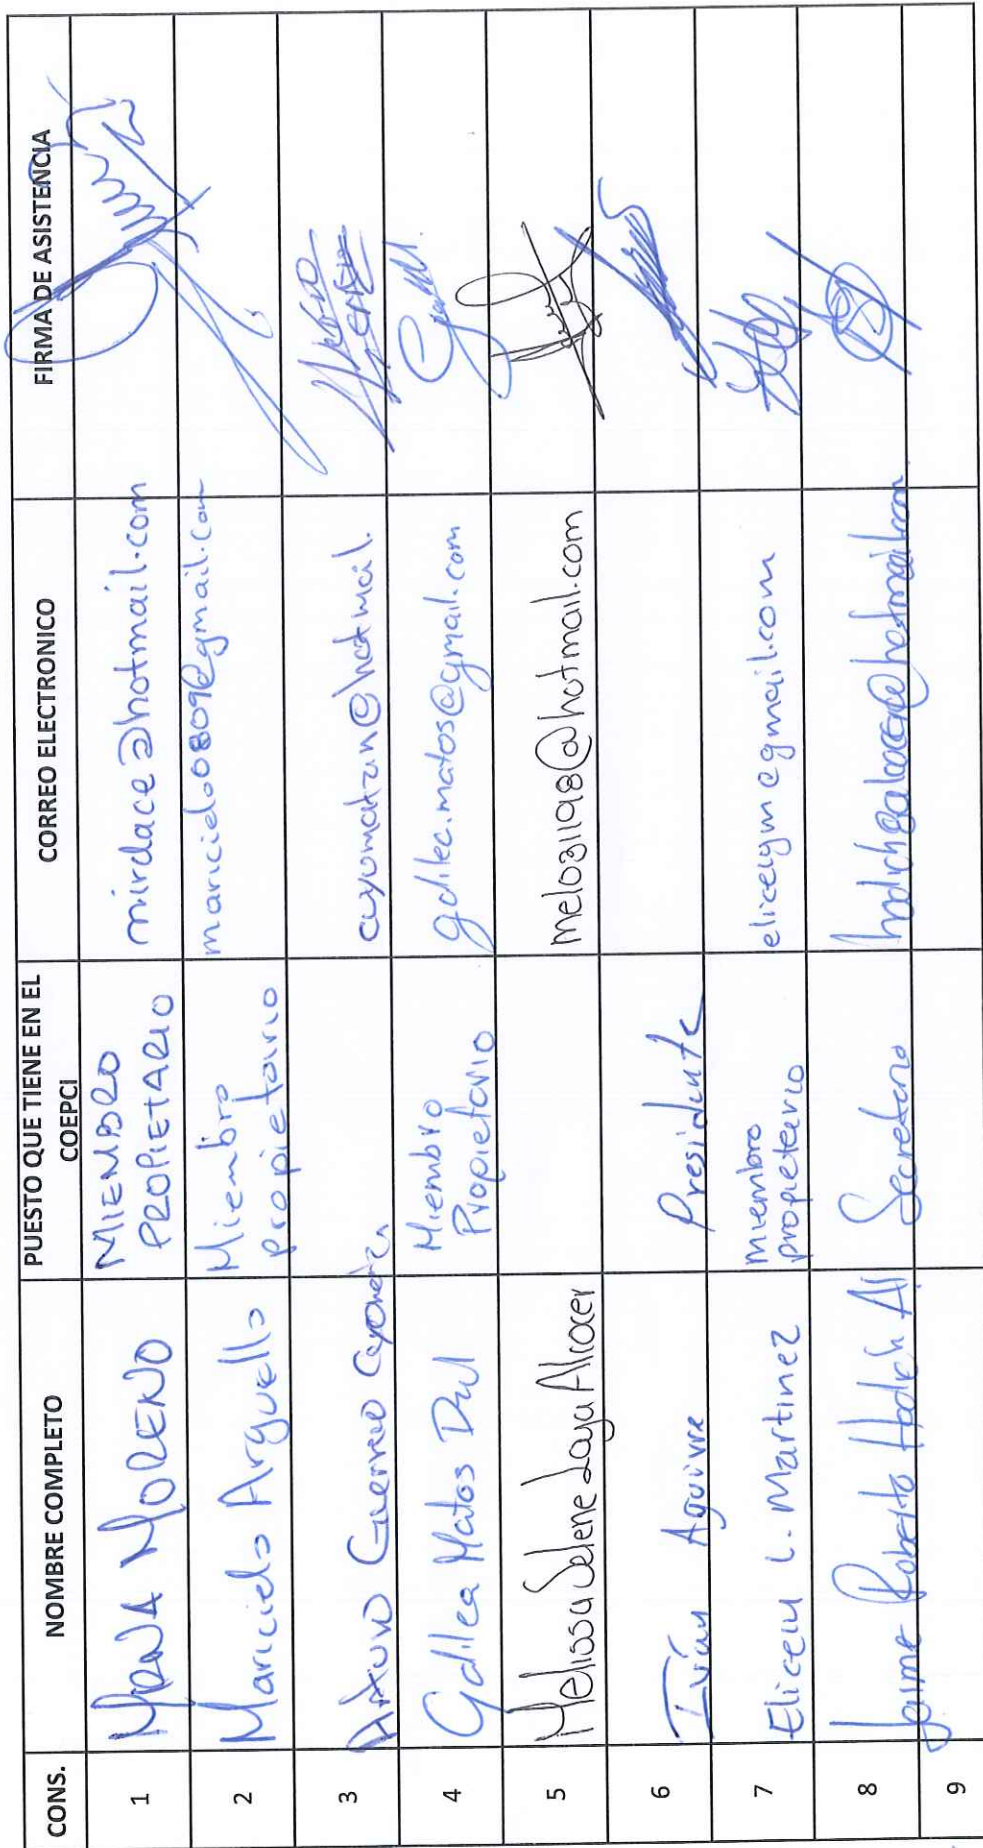 CONS. NOMBRE COMPLETO PUESTO QUE TIENE EN EL COEPCI CORREO ELECTRONICO FIRMA DE ASISTENCIA
1 MIRNA MORENO MIEMBRO PROPIETARIO mirdace@hotmail.com
2 Maricielo Arguello Miembro propietario maricielo0809@gmail.com
3 Arturo Guerrero @hotmail.
4 Gdilea Matos Dul Miembro Propietario gdilea.matos@gmail.com
5 Melissa Selene Loya Alcocer melo031198@hotmail.com
6 Iván Aguirre Presidente
7 Elicely L. Martinez miembro propietario elicelym@gmail.com
8 Jaime Roberto Hadich Al Secretario @hotmail.com
9